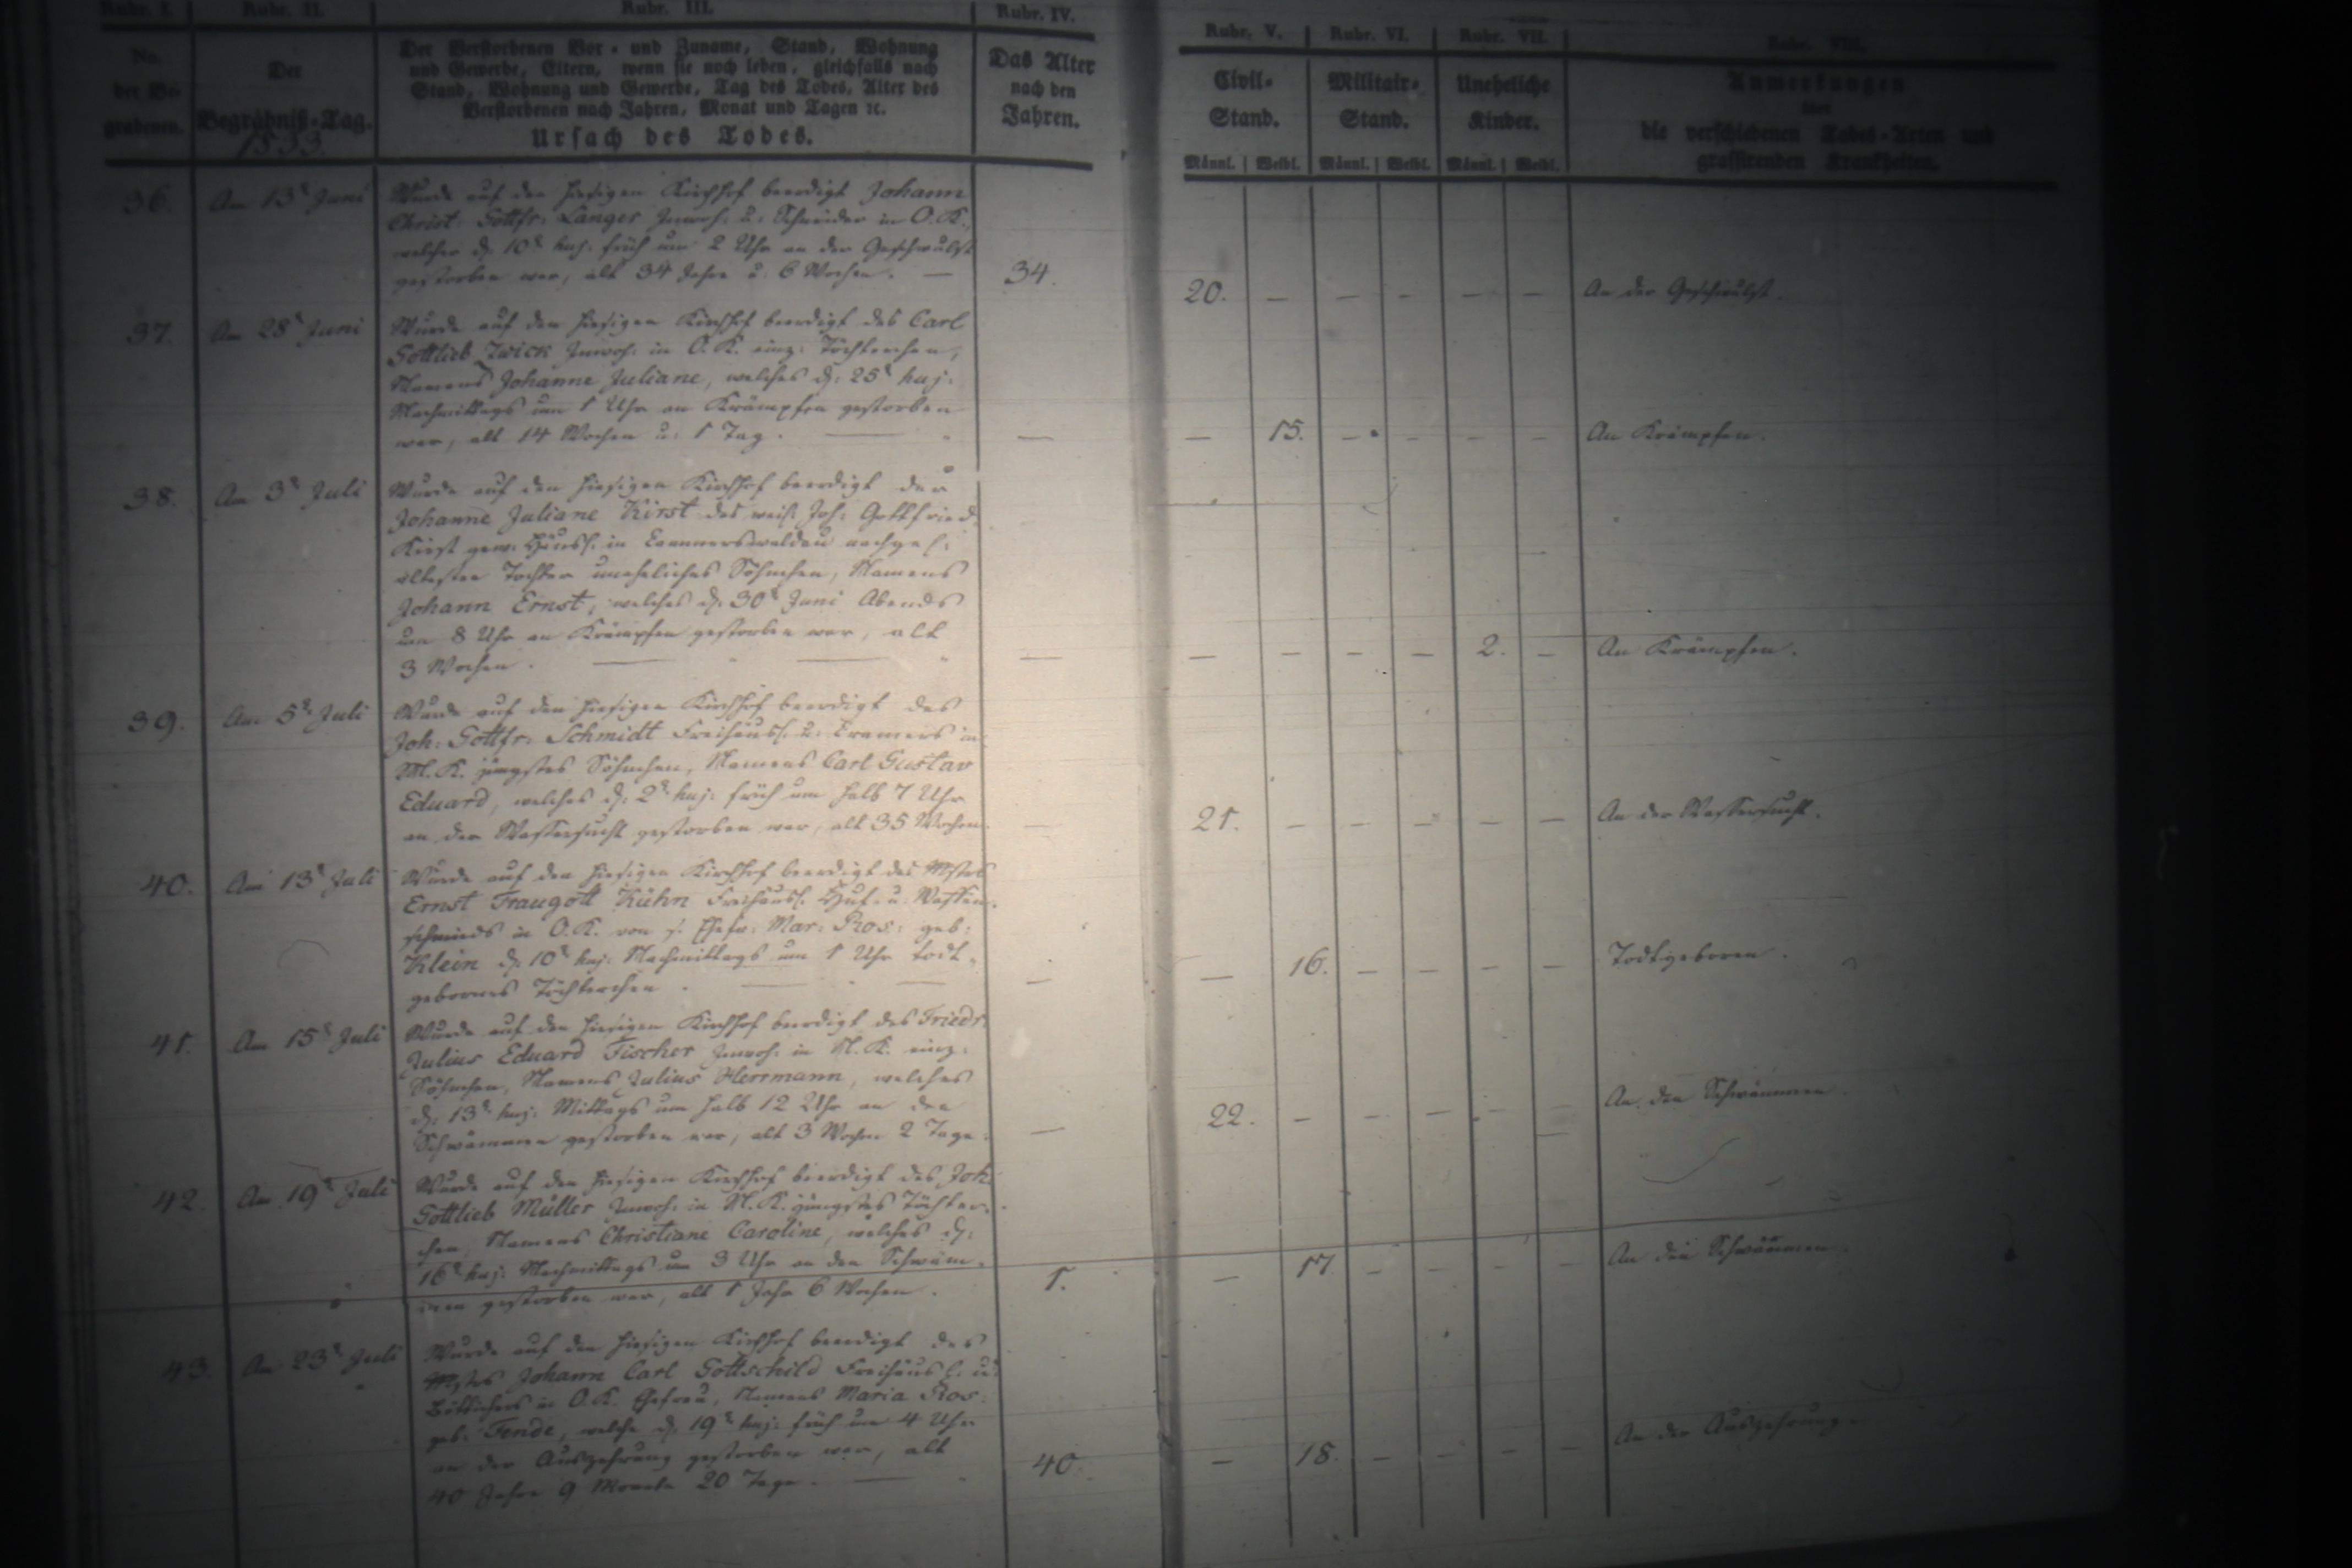 Rubr. I. Rubr. II. Rubr. III. Rubr. IV. Rubr. V. Rubr. VI. Rubr. VII. Rubr. VIII.
No. der Begrabenen.
Der Begräbniß-Tag.
1833.
Der Verstorbenen Vor- und Zuname, Stand, Wohnung
und Gewerbe, Eltern, wenn sie noch leben, gleichfalls nach
Stand, Wohnung und Gewerbe, Tag des Todes, Alter des
Verstorbenen nach Jahren, Monat und Tagen ꝛc.
Ursach des Todes.
Das Alter
nach den
Jahren.
Civil-
Stand.
Männl. Weibl.
Militair-
Stand.
Männl. Weibl.
Uneheliche
Kinder.
Männl. Weibl.
Anmerkungen
über
die verschiedenen Todes-Arten und
grassirenden Krankheiten.
36. Am 13t Juni Wurde auf den hiesigen Kirchhof beerdigt Johann
Christ. Gottfr: Langer Inwoh: u: Schneider in O. K.,
welcher d: 10t huj: früh um 2 Uhr an der Geschwulst
gestorben war, alt 34 Jahre u. 6 Wochen. — 34. 20. — — — — — An der Geschwulst.
37. Am 28t Juni Wurde auf den hiesigen Kirchhof beerdigt des Carl
Gottlieb Zwick Inwoh: in O. K. einz: Töchterchen,
Namens Johanne Juliane, welches d: 25t huj:
Nachmittags um 1 Uhr an Krämpfen gestorben
war, alt 14 Wochen u: 1 Tag. — — — 15. — — — — An Krämpfen.
38. Am 3t Juli Wurde auf den hiesigen Kirchhof beerdigt der
Johanne Juliane Kirst des weil. Joh: Gottfried
Kirst gew: Häusl: in nachgel:
ältesten Tochter uneheliches Söhnchen, Namens
Johann Ernst, welches d: 30t Juni Abends
um 8 Uhr an Krämpfen gestorben war, alt
3 Wochen. — — — — — — — 2. — An Krämpfen.
39. Am 5t Juli Wurde auf den hiesigen Kirchhof beerdigt des
Joh: Gottfr: Schmidt Freihäusl: u: Kramers in
M. K. jüngstes Söhnchen, Namens Carl Gustav
Eduard, welches d: 2t huj: früh um halb 7 Uhr
an der Wassersucht gestorben war, alt 35 Wochen. — 21. — — — — — An der Wassersucht.
40. Am 13t Juli Wurde auf den hiesigen Kirchhof beerdigt des Mstrs
Ernst Traugott Kühn Freihäusl: Huf- u: Waffen-
schmieds in O. K. von s: Ehefr: Mar: Ros: geb:
Klein d: 10t huj: Nachmittags um 1 Uhr todt-
gebornes Töchterchen. — — — — 16. — — — — Todtgeboren.
41. Am 15t Juli Wurde auf den hiesigen Kirchhof beerdigt des Friedr:
Julius Eduard Fischer Inwoh: in N. K. einz:
Söhnchen, Namens Julius Herrmann, welches
d: 13t huj: Mittags um halb 12 Uhr an den
Schwämmen gestorben war, alt 3 Wochen 2 Tage. — 22. — — — — — An den Schwämmen.
42. Am 19t Juli Wurde auf den hiesigen Kirchhof beerdigt des Joh:
Gottlieb Müller Inwoh: in N. K. jüngstes Töchter-
chen, Namens Christiane Caroline, welches d:
16t huj: Nachmittags um 3 Uhr an den Schwäm-
men gestorben war, alt 1 Jahr 6 Wochen. 1. — 17. — — — — An den Schwämmen.
43. Am 23t Juli Wurde auf den hiesigen Kirchhof beerdigt des
Mstrs Johann Carl Gottschild Freihäusl: u:
Böttichers in O. K. Ehefrau, Namens Maria Ros:
geb: Fende, welche d: 19t huj: früh um 4 Uhr
an der Auszehrung gestorben war, alt
40 Jahre 9 Monate 20 Tage. — 40. — 18. — — — — An der Auszehrung.